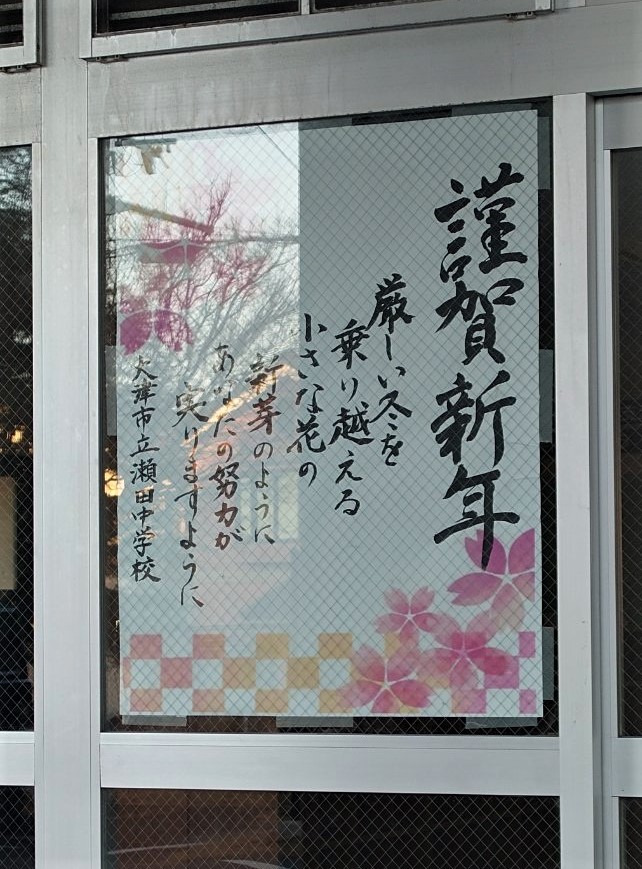 謹賀新年
厳しい冬を
乗り越える
小さな花の
新芽のように
あなたの努力が
実りますように
大津市立瀬田中学校